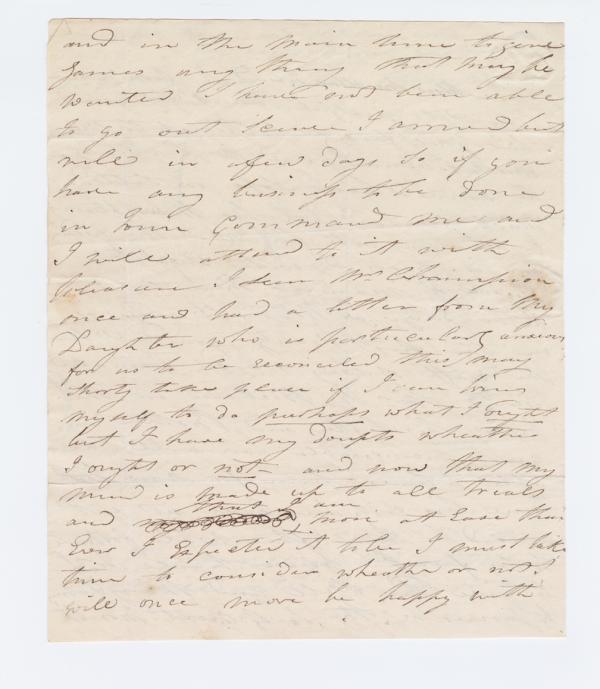 and in the main time to give
James any thing that may be
wanted I have not been able
to go out sence I arrived but
will in a few days so if you
have any business to be done
in Town Command me and
I will attend to it with
pleasure I seen Mrs Champion
once and had a letter from My
Daughter who is particularly anxious
for us to be reconciled this may
shorty take place if I can bring
myself to do perhaps what I ought
but I have my doupts wheather
I ought or not and now that my
mind is made up to all trials
that I am
and more at Ease than
Ever I Expected it to be I must take
time to consider wheather or not I
will once more be happy with